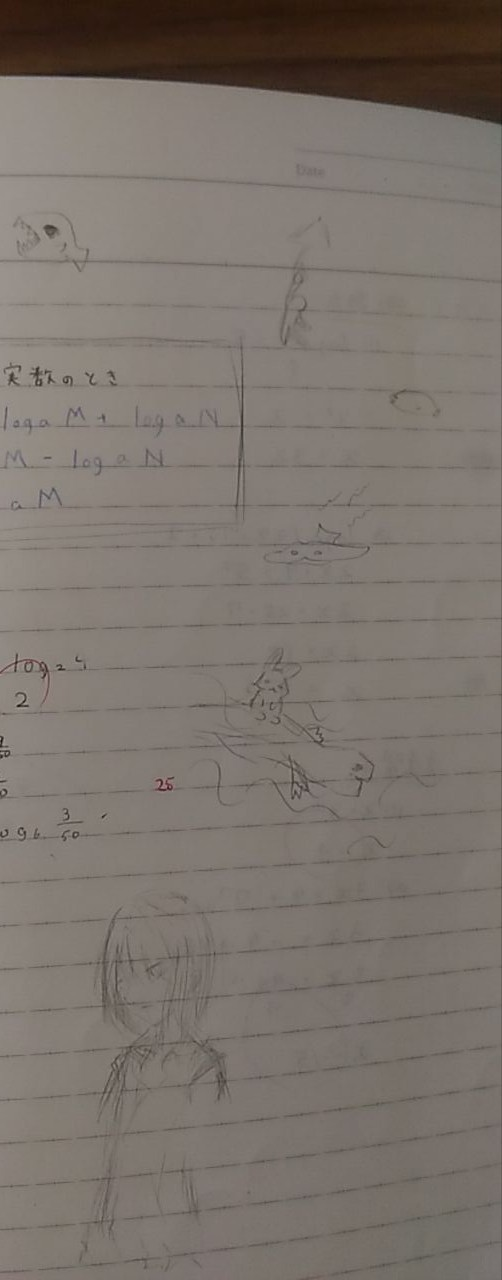 Date
実数のとき
loga M + log a N
M - log a N
a M
log 2 4
2
25
3/50